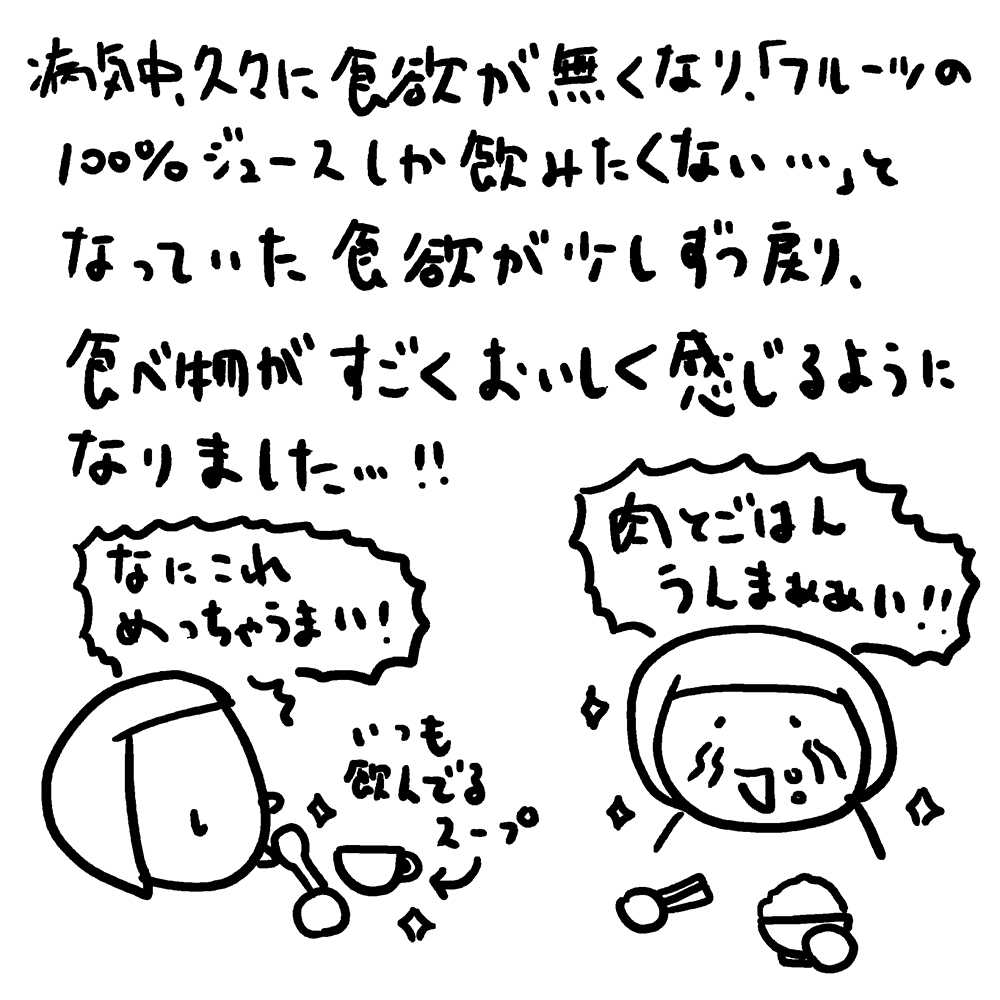 病気中、久々に食欲が無くなり、「フルーツの
100%ジュースしか飲みたくない…」と
なっていた食欲が少しずつ戻り、
食べ物がすごくおいしく感じるように
なりました…!!
なにこれ
めっちゃうまい!
いつも
飲んでる
スープ
肉とごはん
うんまぁぁい!!